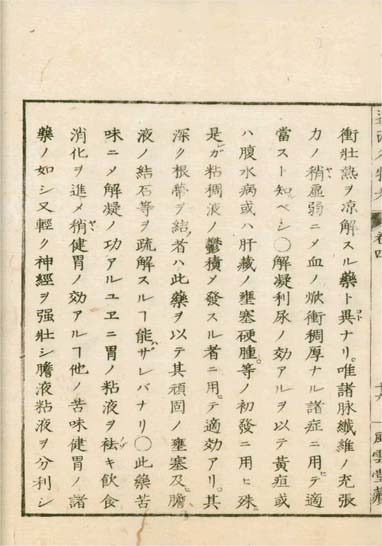 衝壮熱ヲ凉解スル藥ト異ナリ。唯諸脉纖維ノ充張
力ノ稍虛弱ニメ血ノ焮衝稠厚ナル諸症ニ用テ適
當スト知ベシ〇解凝利尿ノ効アルヲ以テ黃疸或
ハ腹水病或ハ肝藏ノ壅塞硬腫。等ノ初發ニ用ヒ殊ニ
是ガ粘稠液ノ鬱積メ發スル者ニ用テ適効アリ。其
深ク根蔕ヲ結ブ者ハ此藥ヲ以テ其頑固ノ壅塞及ビ膽
液ノ結石等ヲ疏解スルヿ能ハザレバナリ〇此藥苦
味ニメ解凝ノ功アルユヱニ胃ノ粘液ヲ祛キ飲食
消化ヲ進メ稍健胃ノ効アルヿ他ノ苦味健胃ノ諸
藥ノ如シ又輕ク神經ヲ强壮シ膽液粘液ヲ分利シ